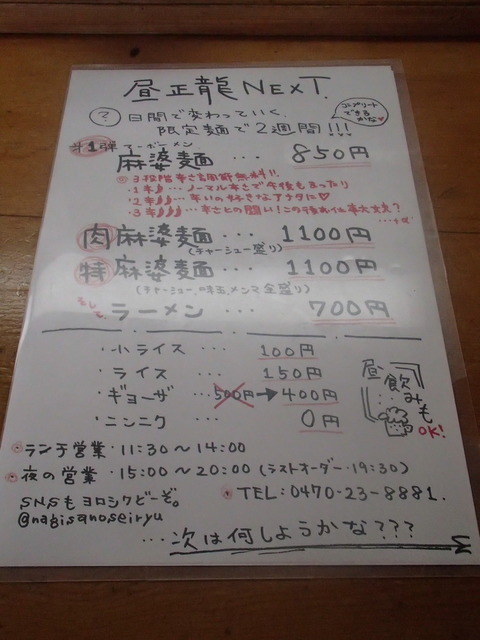 昼正龍NEXT.
? 日間で変わっていく、
限定麺で2週間!!!
コンプリート
できる
かな
第1弾 マーボーメン
麻婆麺 … 850円
3段階辛さ調節無料!!
1辛 … ノーマル辛さで午後もまったり
2辛 … 辛いの好きなアナタに♡
3辛 … 辛さとの闘い!この後お仕事大丈夫?
肉麻婆麺 … 1100円
(チャーシュー盛り)
特麻婆麺 … 1100円
(チャーシュー、味玉、メンマ全盛り)
そして ラーメン … 700円
・小ライス … 100円
・ライス … 150円
・ギョーザ … 500円→400円
・ニンニク … 0円
昼飲みも
OK!
ランチ営業・11:30〜14:00
夜の営業・15:00〜20:00(ラストオーダー・19:30)
SNSもヨロシクどーぞ。
@nagisanoseiryu
・TEL:0470-23-8881.
…次は何しようかな???